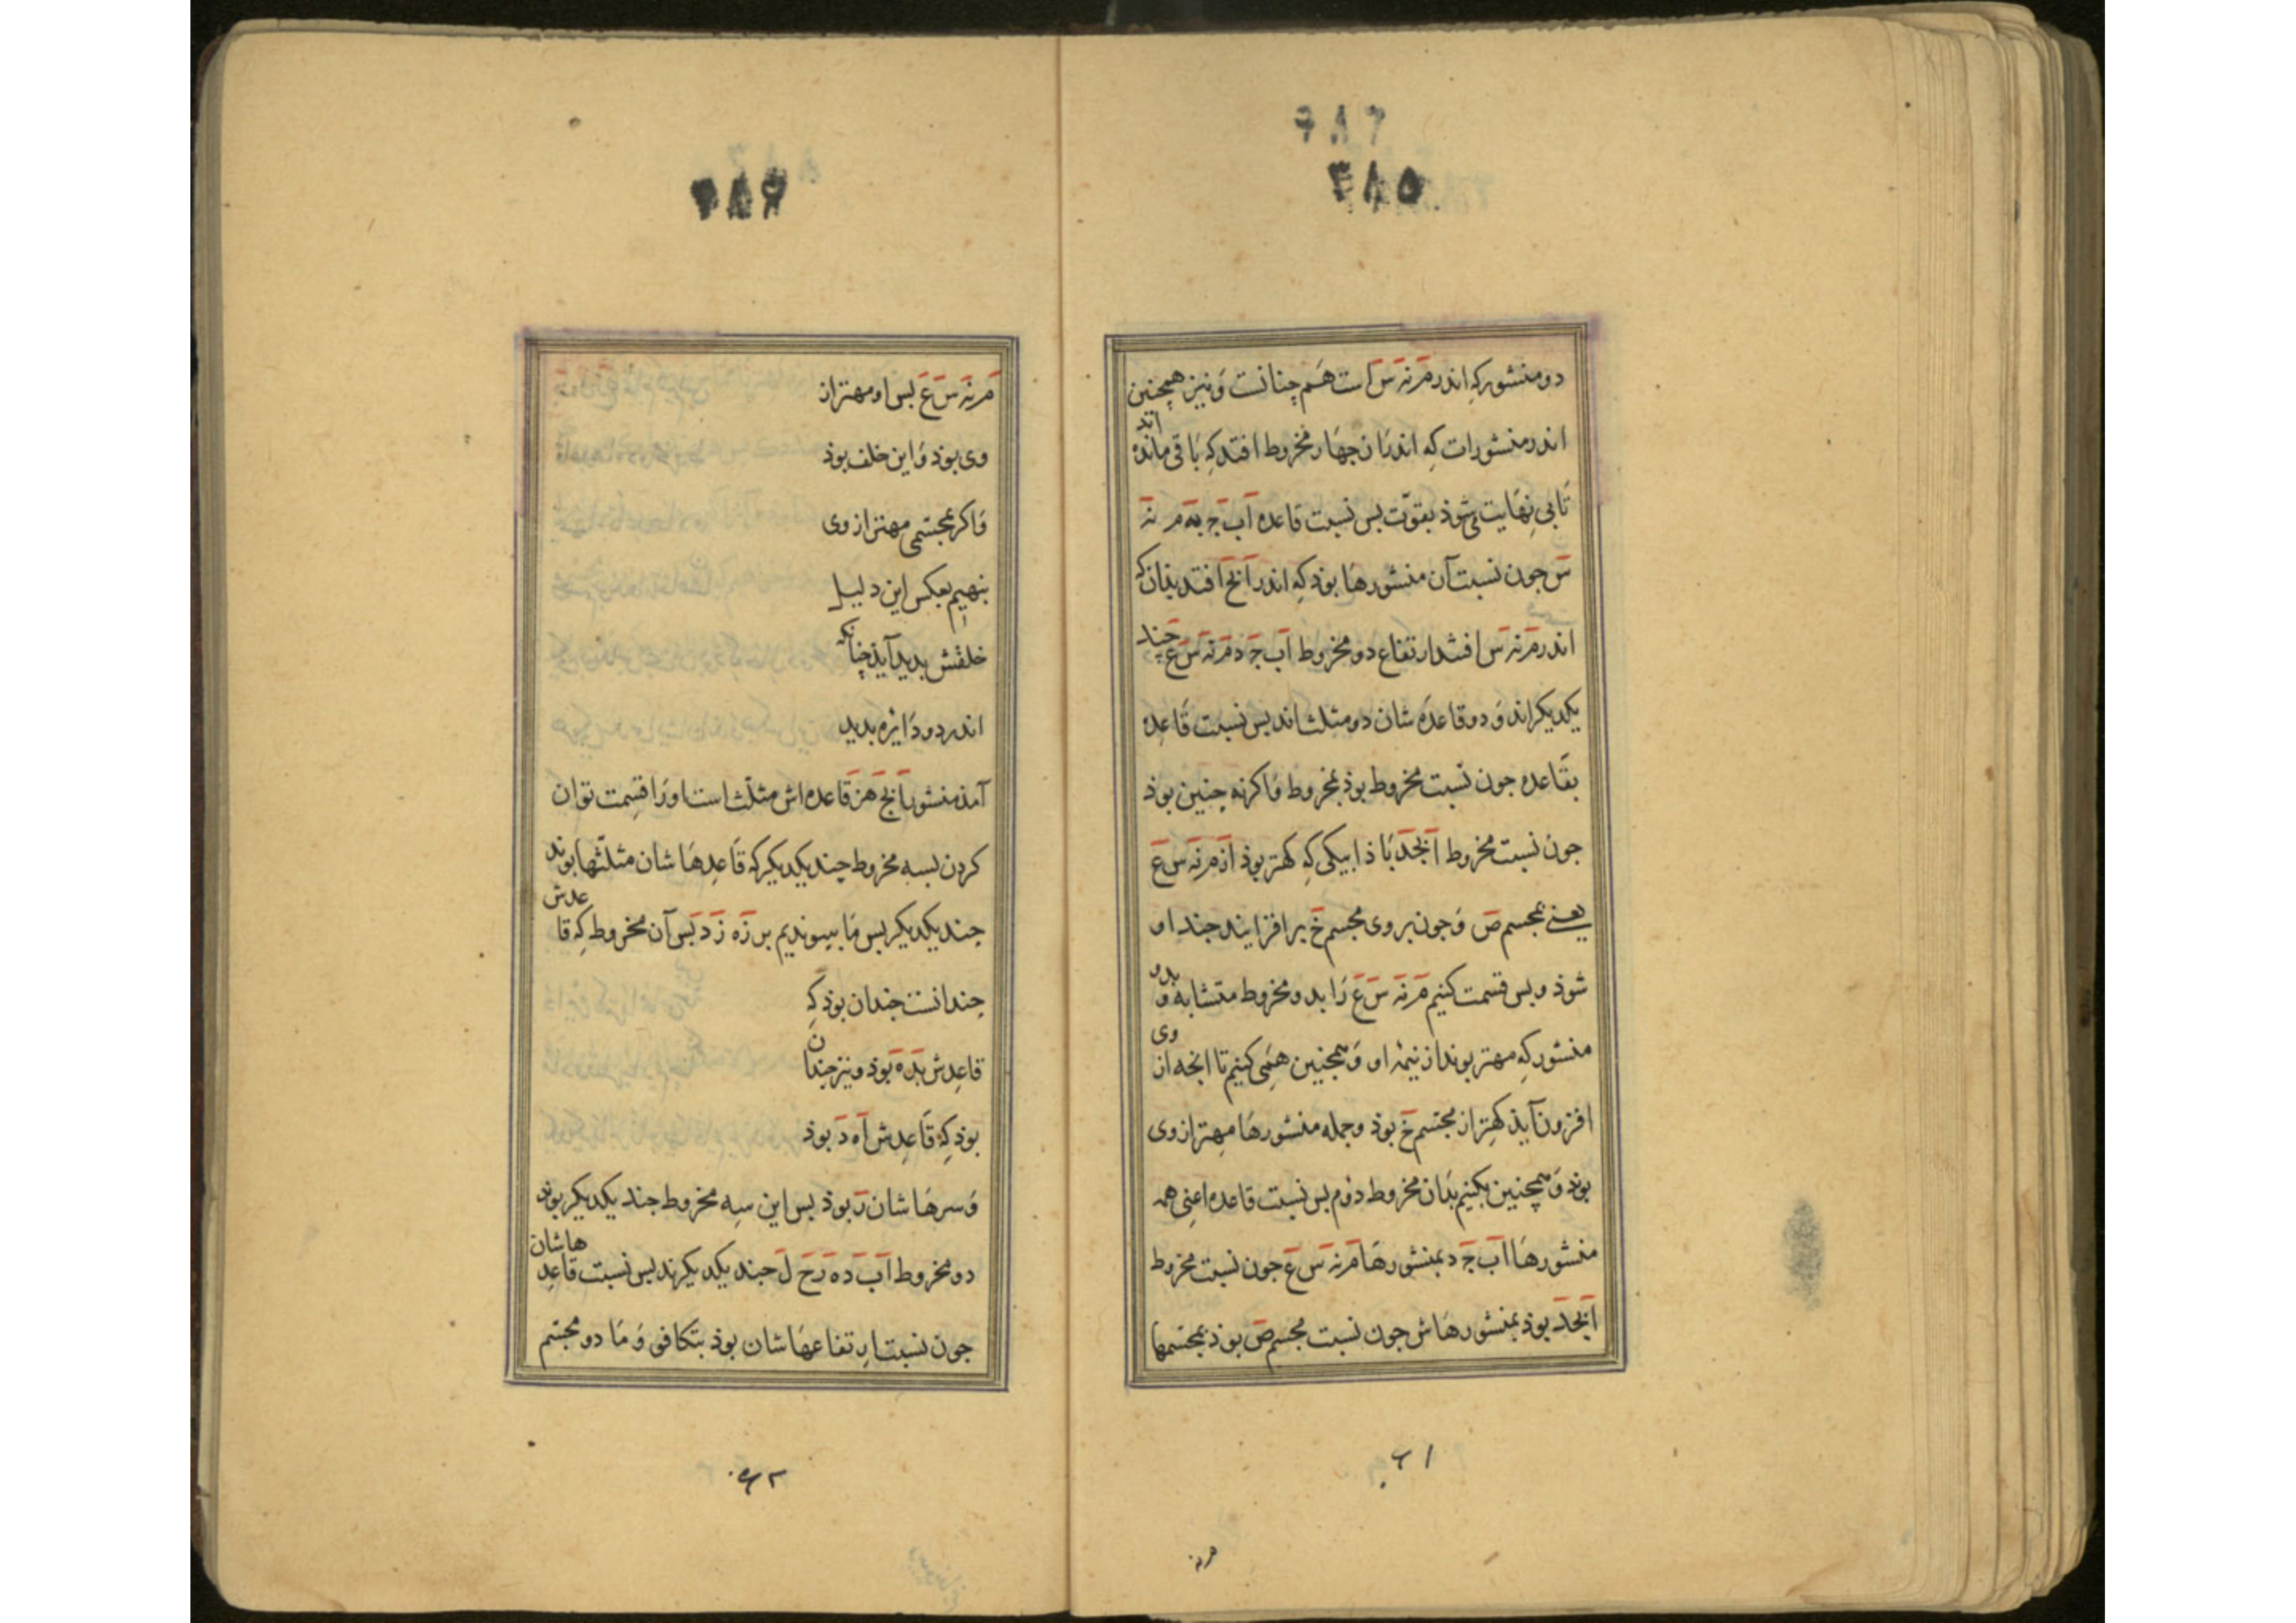 ۲۸۶
۲۸۵
دو منشور که اندر مَ نَه سَ است هم چنانست و نیز همچنین
اندر منشورات که اندران چهار مخروط افتد که باقی مانده اند
تا بی نهایت می شوذ بقوّت بس نسبت قاعده اَبَ جَ به مَ نَه
سَ جون نسبت آن منشورها بوذ که اندر اَبجَ افتد بذان که
اندر مَ نَه سَ افتد ارتفاع دو مخروط اَبَ جَ دَ مَ نَه سَ عَ چند
یکدیکر اند و دو قاعده شان دو مثلث اند بس نسبت قاعده
بقاعده جون نسبت مخروط بوذ بمخروط و اکر نه چنین بوذ
جون نسبت مخروط اَبجَدَ باذا بیکی که کهتر بوذ از مَ نَه سَ عَ
یعنی بمجسم صَ و جون بر وی مجسم خَ بر افزایند جند او
شوذ و بس قسمت کنیم مَ نَه سَ عَ را بدو مخروط متشابه و بدو
منشور که مهتر بوند از نیمهٔ او و همجنین همی کنیم تا انجه از وی
افزون آیذ کهتر از مجسم خَ بوذ و جمله منشورها مهتر از وی
بوند و همچنین بکنیم بذان مخروط دوم بس نسبت قاعده اعنی همه
منشورها اَبَ جَ د بمنشورها مَ نَه سَ عَ جون نسبت مخروط
اَبجَدَ بوذ بمنشورهاش جون نسبت مجسم صَ بوذ بمجسمها
۶۱
مرنه
۲۸۶
مَ نَه سَ عَ بس او مهتر از
وی بوذ و این خلف بوذ
و اکر مجسمی مهتر از وی
بنهیم بعکس این دلیل
خلفش بدید آیذ چنانکه
اندر دو دایره بدید
آمذ منشور اَبجَ هَزَ قاعده اش مثلث است او را قسمت توان
کردن بسه مخروط چند یکدیکر که قاعدها شان مثلّثها بوند
چند یکدیکر بس ما بیبوندیم بر زَه زَدَ بس آن مخروط که قاعدش
چندانست چندان بوذ که
قاعدش بَدَه بوذ و نیز چندان
بوذ که قاعدش اَه دَ بوذ
و سرها شان زَ بوذ بس این سه مخروط جند یکدیکر بوند
دو مخروط اَبَ دَه زَحَ لَ جند یکدیکرند بس نسبت قاعدهاشان
جون نسبت ارتفاعها شان بوذ بتکافی و ما دو مجسم
۶۲